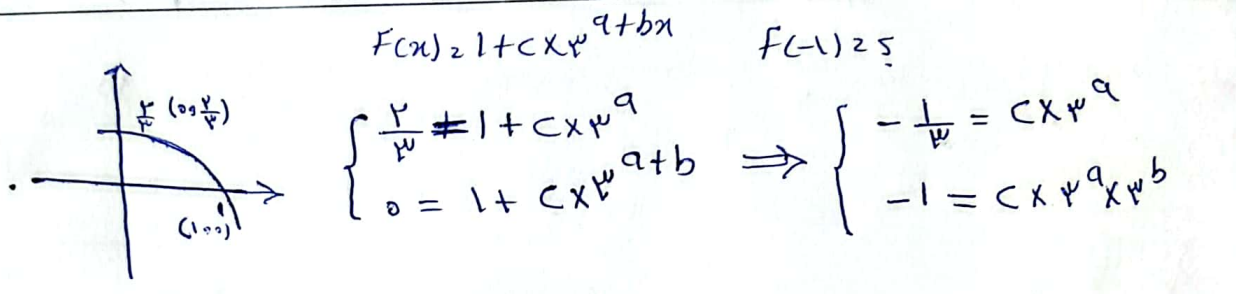 F(x) = 1 + C × ۳^(a+bx)    F(-1) = ?
۲/۳ (0, ۲/۳)
(1, 0)
{ ۲/۳ = 1 + C × ۳^a
0 = 1 + C × ۳^(a+b)
⇒ { - 1/۳ = C × ۳^a
-1 = C × ۳^a × ۳^b